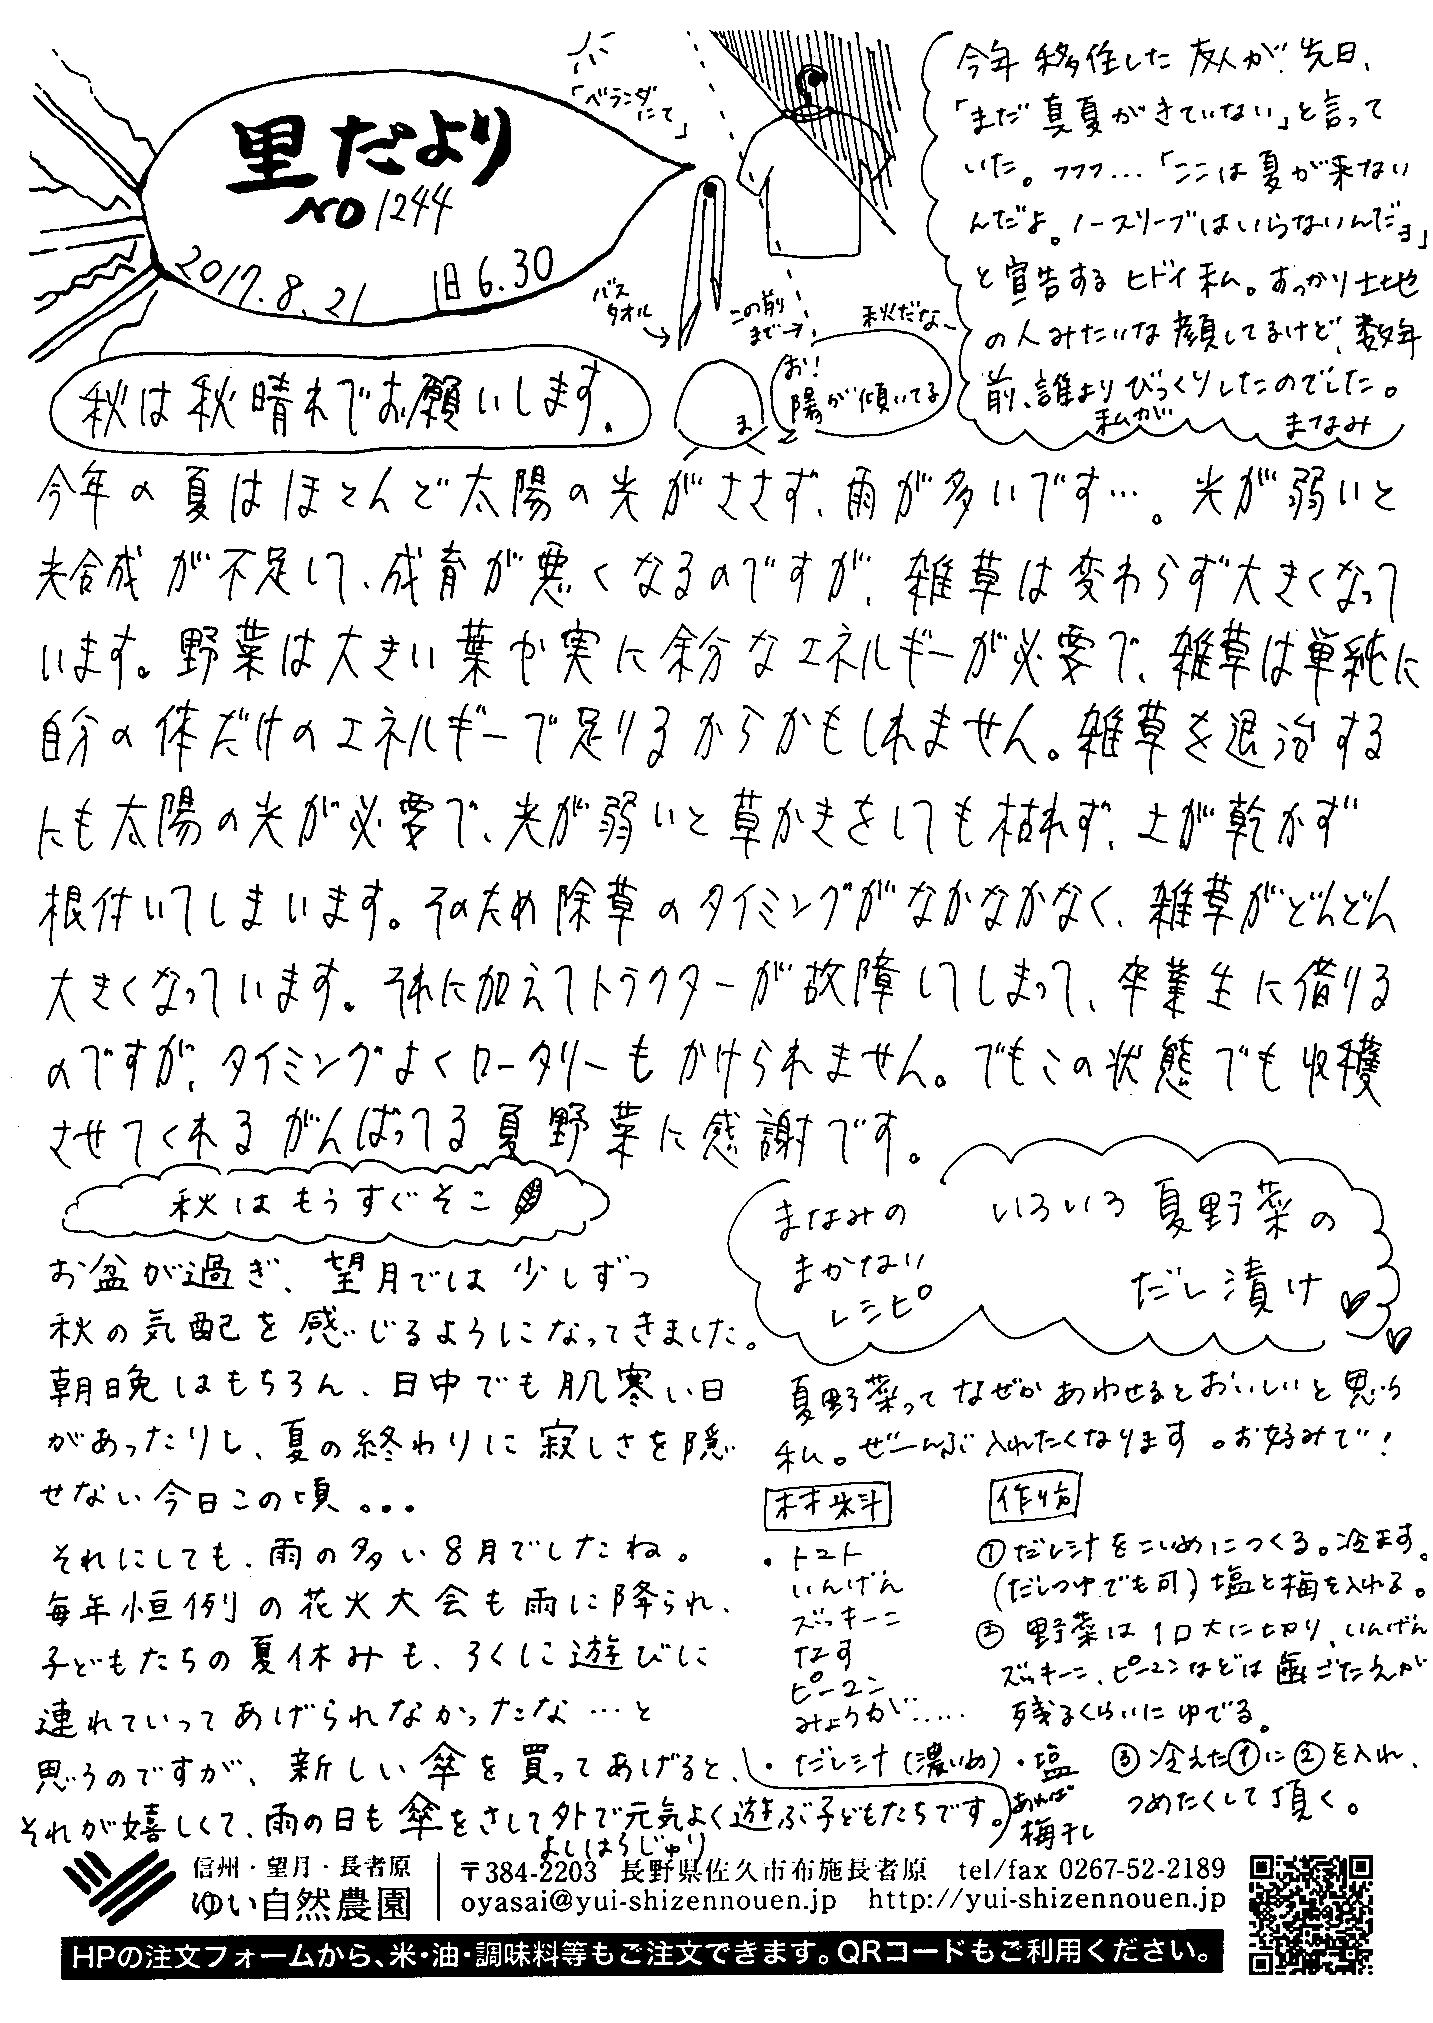 里だより
NO 1244
2017.8.21 旧6.30
「ベランダにて」
バスタオル→
この前まで→
秋だな~
お!
陽が傾いてる
ま
今年移住した友人が先日、
「まだ真夏がきていない」と言って
いた。フフフ…「ここは夏が来ない
んだよ。ノースリーブはいらないんだョ」
と宣告するヒドイ私。すっかり土地
の人みたいな顔してるけど、数年
前、誰よりびっくりしたのでした。
私が
まなみ
秋は秋晴れでお願いします。
今年の夏はほとんど太陽の光がささず、雨が多いです…。光が弱いと
光合成が不足して、成育が悪くなるのですが、雑草は変わらず大きくなって
います。野菜は大きい葉や実に余分なエネルギーが必要で、雑草は単純に
自分の体だけのエネルギーで足りるからかもしれません。雑草を退治する
にも太陽の光が必要で、光が弱いと草かきをしても枯れず、土が乾かず
根付いてしまいます。そのため除草のタイミングがなかなかなく、雑草がどんどん
大きくなっています。それに加えてトラクターが故障してしまって、卒業生に借りる
のですが、タイミングよくロータリーもかけられません。でもこの状態でも収穫
させてくれるがんばってる夏野菜に感謝です。
秋はもうすぐそこ
お盆が過ぎ、望月では少しずつ
秋の気配を感じるようになってきました。
朝晩はもちろん、日中でも肌寒い日
があったりし、夏の終わりに寂しさを隠
せない今日この頃。。。
それにしても、雨の多い8月でしたね。
毎年恒例の花火大会も雨に降られ、
子どもたちの夏休みも、ろくに遊びに
連れていってあげられなかったな…と
思うのですが、新しい傘を買ってあげると、
それが嬉しくて、雨の日も傘をさして外で元気よく遊ぶ子どもたちです。
よしはらじゅり
まなみの
まかない
レシピ
いろいろ夏野菜の
だし漬け
夏野菜ってなぜかあわせるとおいしいと思う
私。ぜーんぶ入れたくなります。お好みで!
材料
・トマト
いんげん
ズッキーニ
なす
ピーマン
みょうが……
・だし汁(濃いめ)・塩
あれば
梅干し
作り方
①だし汁をこいめにつくる。冷ます。
(だしつゆでも可)塩と梅を入れる。
②野菜は1口大に切り、いんげん
ズッキーニ、ピーマンなどは歯ごたえが
残るくらいにゆでる。
③冷えた①に②を入れ、
つめたくして頂く。
信州・望月・長者原
ゆい自然農園
〒384-2203 長野県佐久市布施長者原 tel/fax 0267-52-2189
oyasai@yui-shizennouen.jp http://yui-shizennouen.jp
HPの注文フォームから、米・油・調味料等もご注文できます。QRコードもご利用ください。